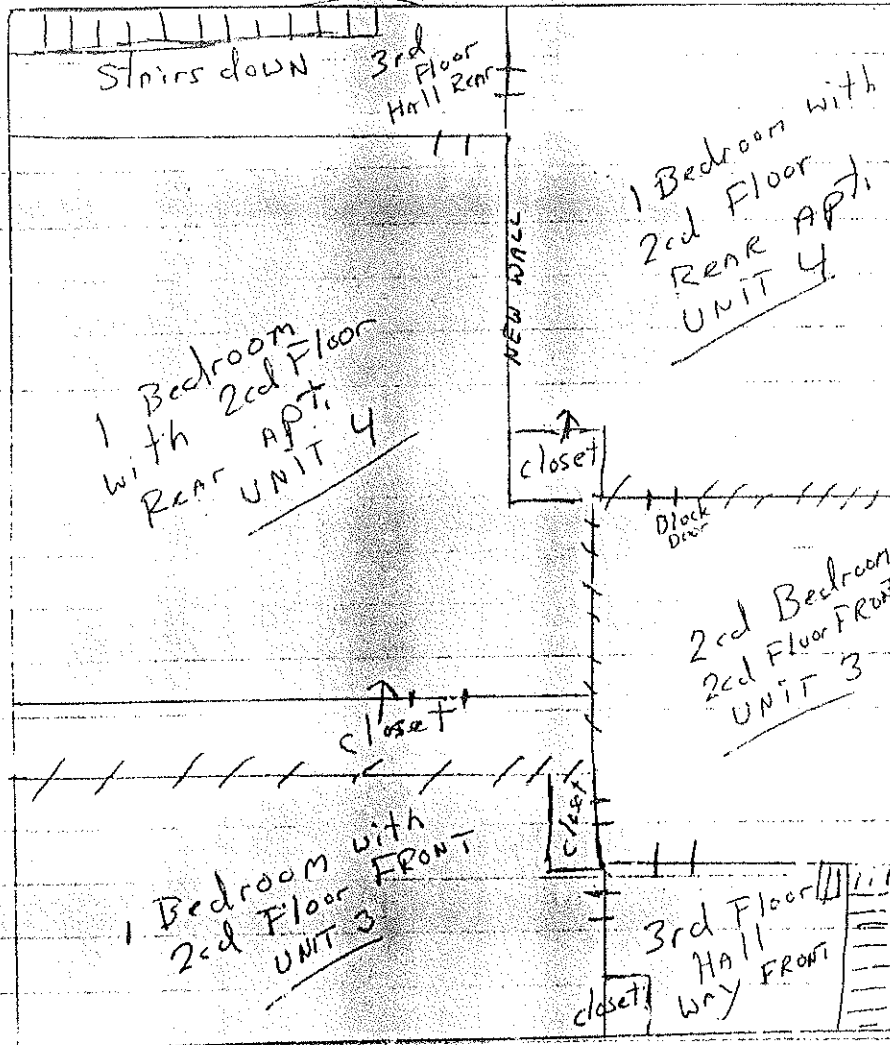 Stairs down
3rd
Floor
Hall Rear
1 Bedroom with
2cd Floor
Rear Apt.
UNIT 4
NEW WALL
1 Bedroom
with 2cd Floor
Rear apt.
UNIT 4
closet
Block
Door
2cd Bedroom
2cd Floor FRONT
UNIT 3
closet
closet
1 Bedroom with
2cd Floor FRONT
UNIT 3
3rd Floor
Hall
Way FRONT
closet